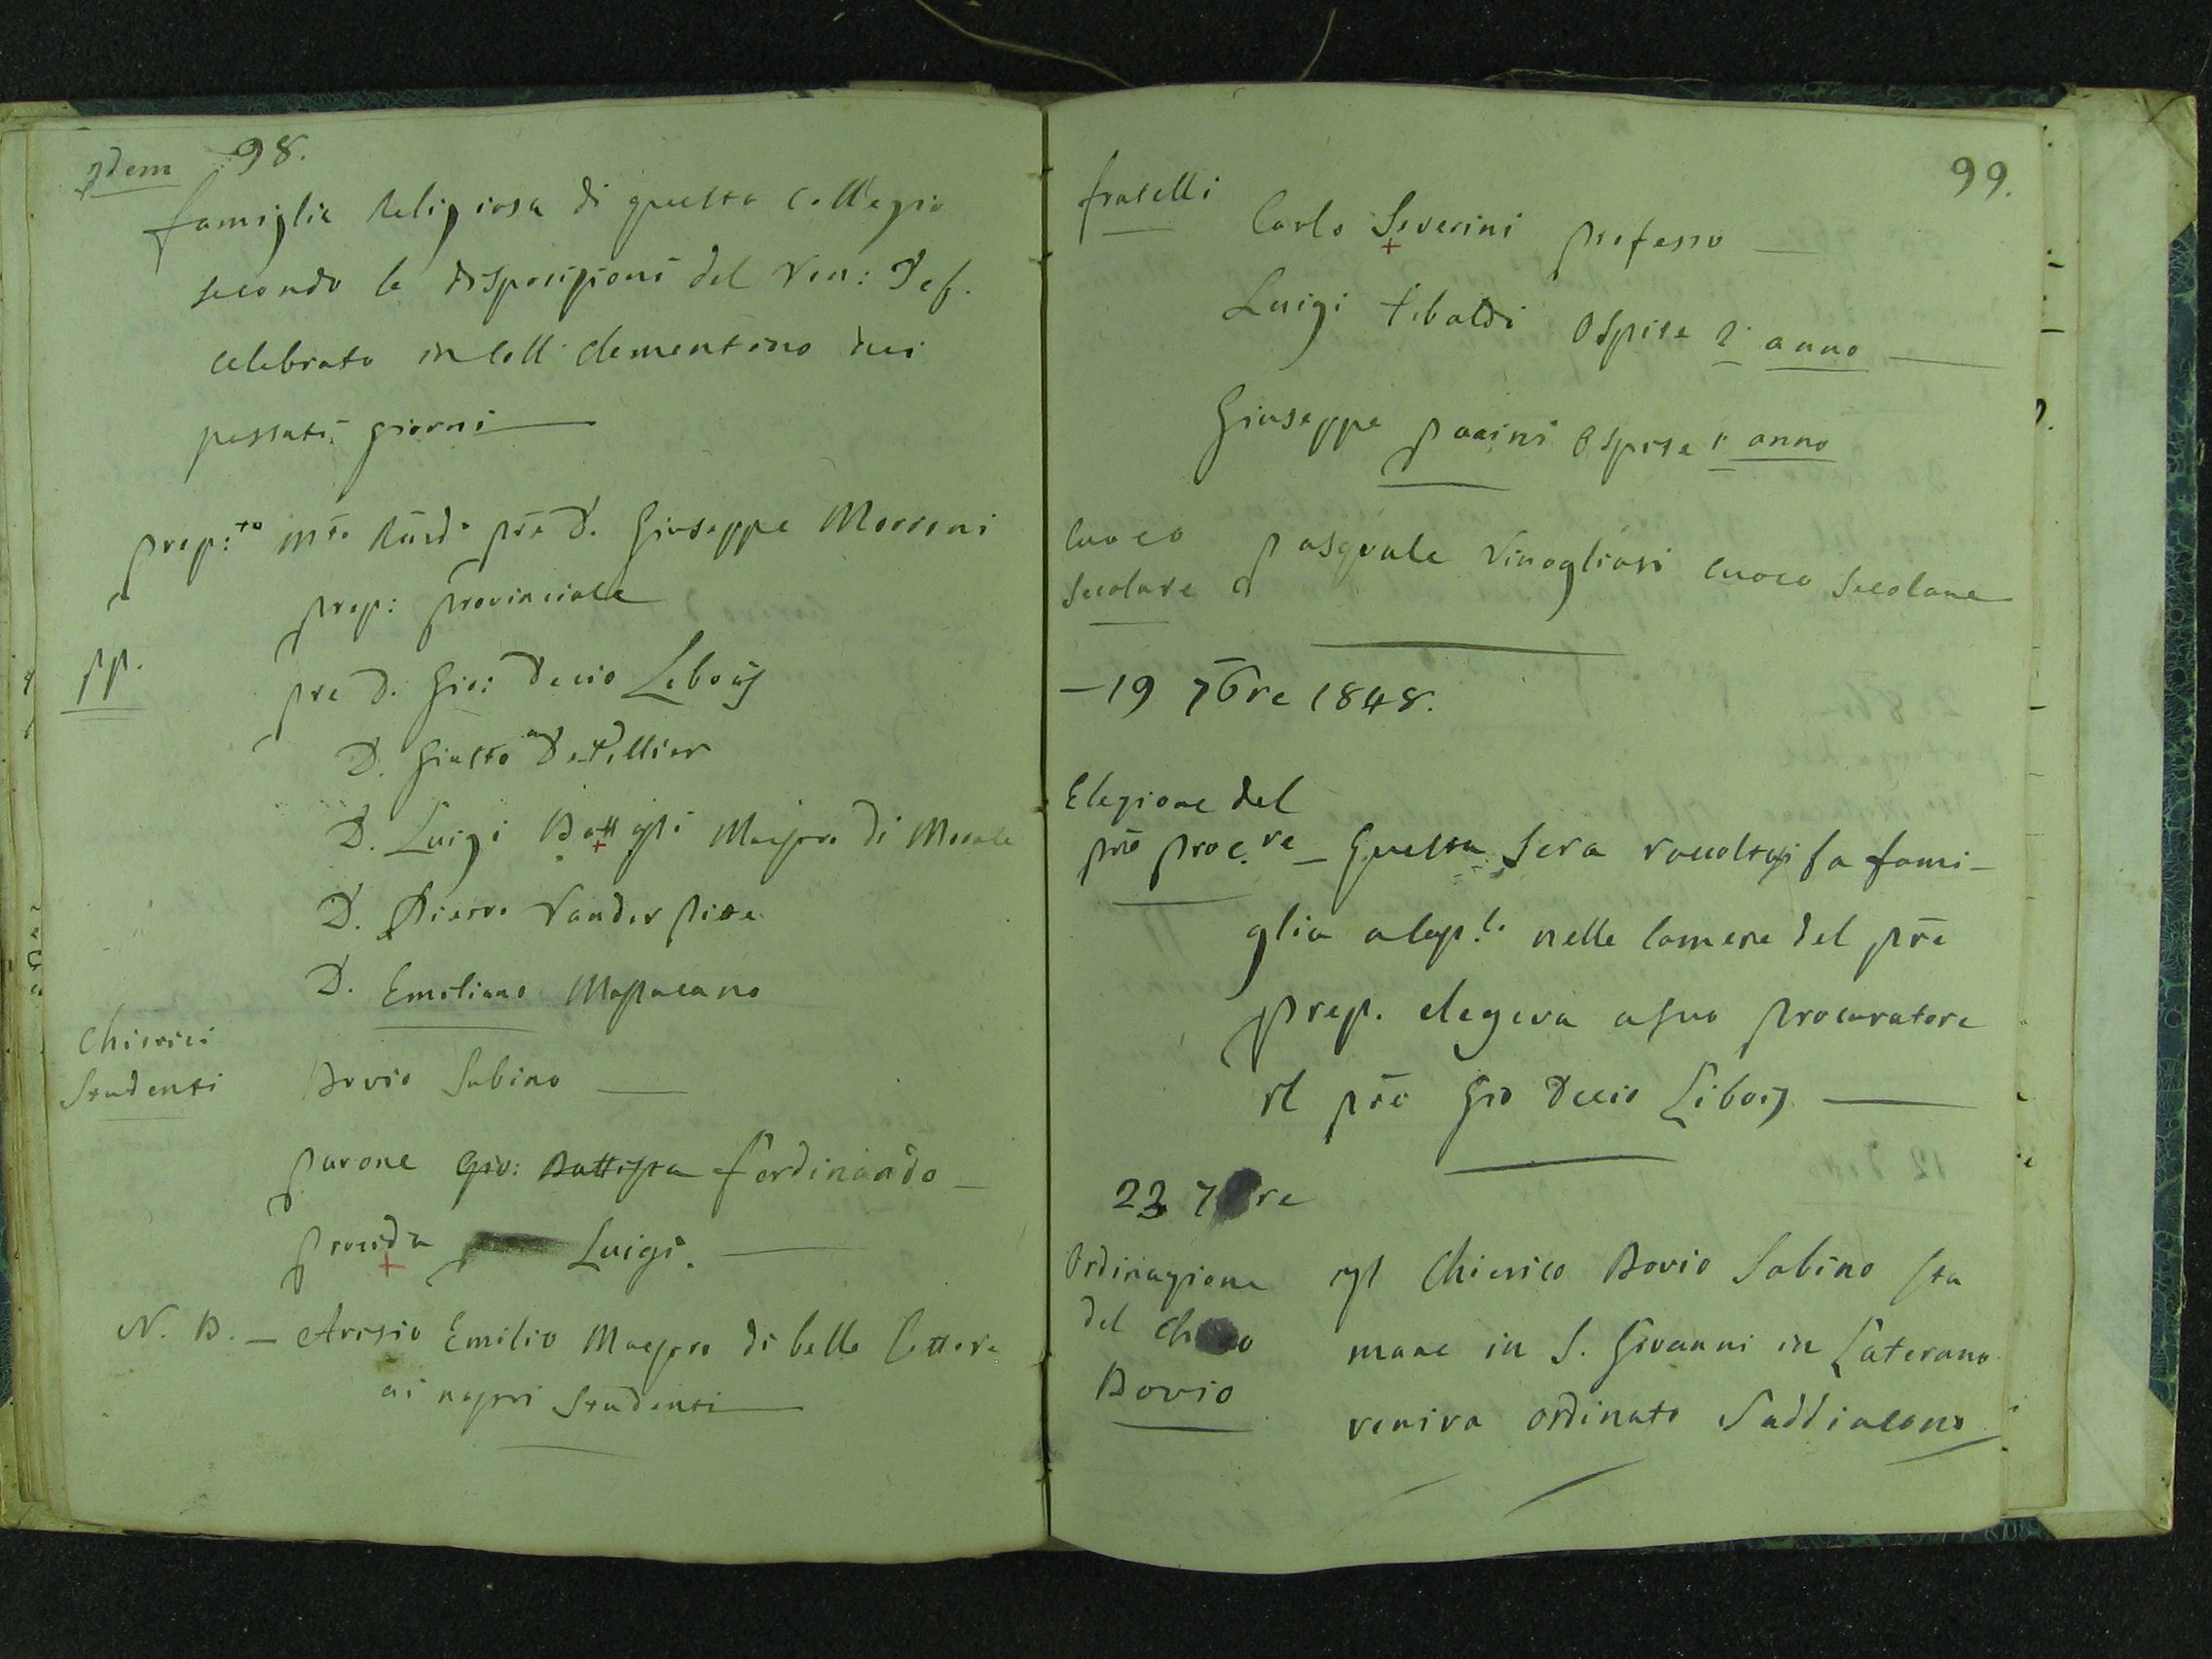 98.
Idem
famiglia Religiosa di questo Collegio
secondo le disposizioni del Ven: Def.
celebrato in Coll: Clementino nei
passati giorni
Prep:to M.to Rñdo pre D. Giuseppe Morroni
prep: provinciale
pp.
pre D. Gio: Decio Libois
D. Giusto De Tillier
D. Luigi Maestro di Morale
D. Pierro Vander
D. Emiliano
Chierici
Studenti Bovio Sabino
Parone Gio: Battista Ferdinando
Procida Luigi.
N. B. – Arisio Emilio Maestro di belle lettere
ai nostri Studenti
99.
fratelli
Carlo Severini professo
Luigi Tibaldi Ospite 2° anno
Giuseppe Pacini Ospite 1° anno
Cuoco
Secolare Pasquale Cuoco Secolare
– 19 7bre 1848.
Elezione del
prē Proc.re – Questa sera raccoltasi la fami-
glia a Cap.lo nelle Camere del prē
prep. elegeva a suo Procuratore
il prē Gio Decio Libois
23 7bre
Ordinazione
del Ch
Bovio
Il Chierico Bovio Sabino sta
mane in S. Giovanni in Laterano
veniva ordinato Suddiacono